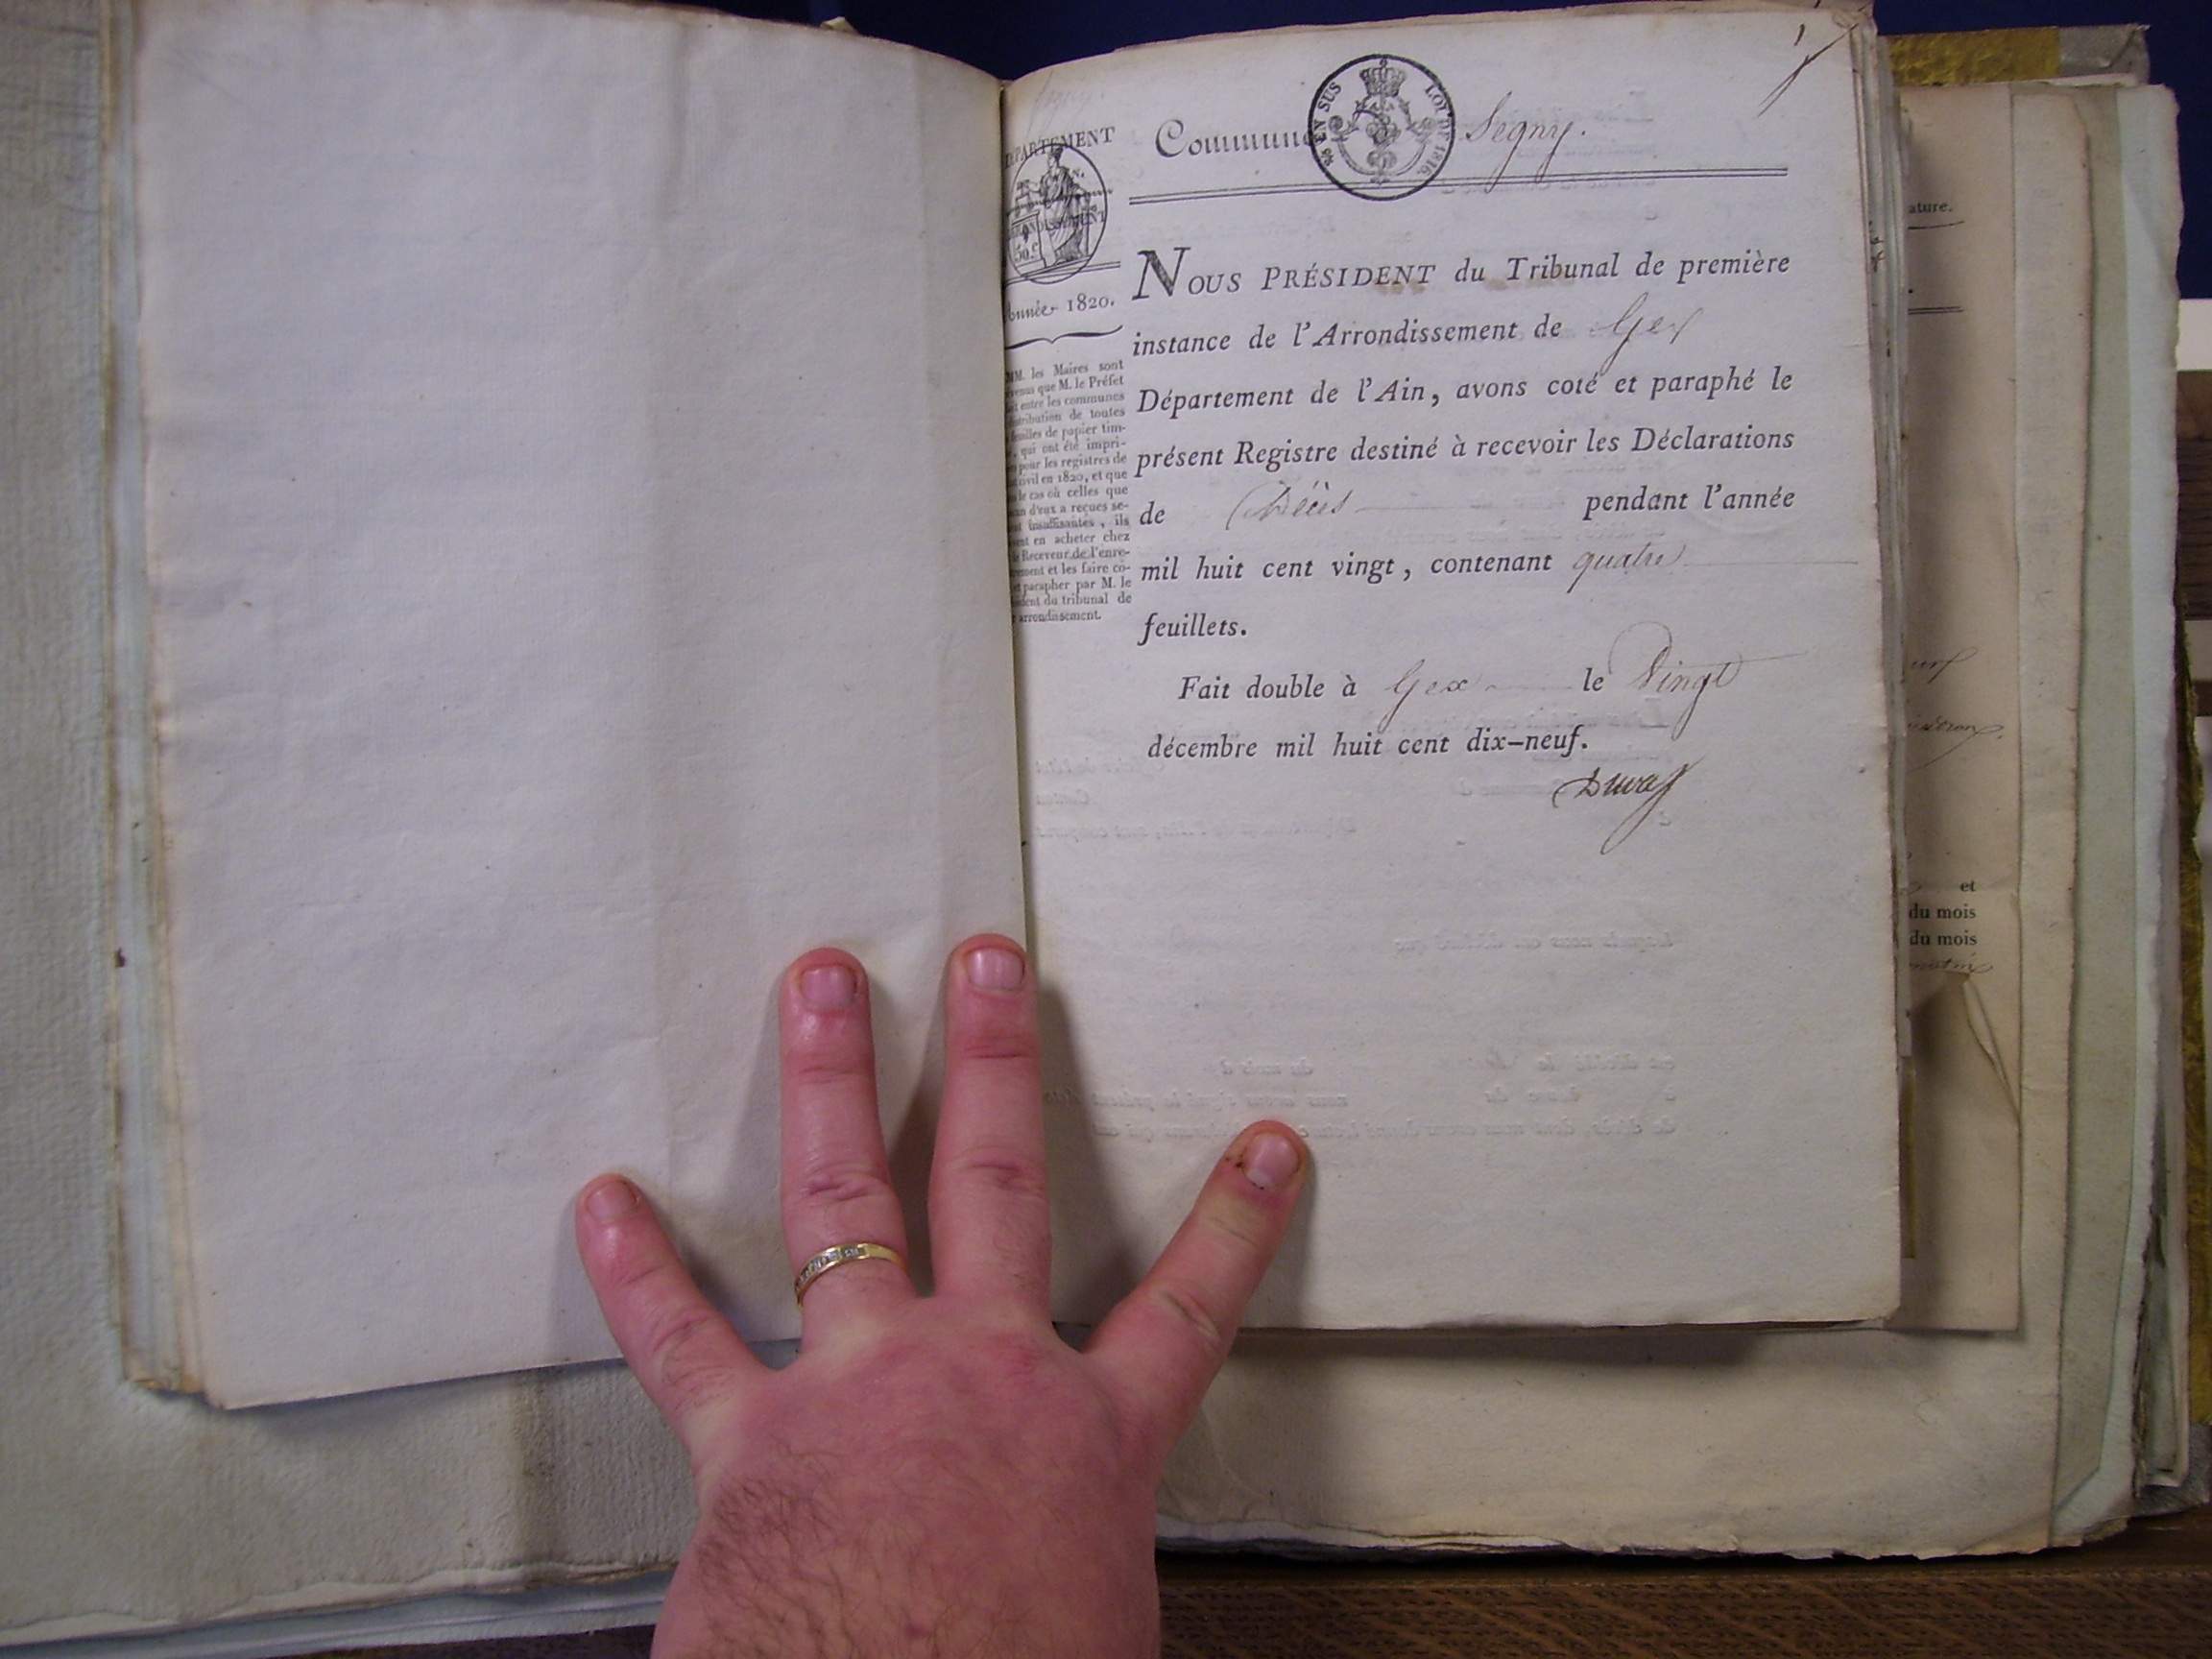 DÉPARTEMENT
DE L'AIN.
ARRONDISSEMENT
50.c
Année 1820.
MM. les Maires sont
que M. le Préfet
entre les communes
distribution de toutes
feuilles de papier tim-
qui ont été impri-
pour les registres de
civil en 1820, et que
le cas où celles que
d'eux a reçues se-
insuffisantes, ils
en acheter chez
le Receveur de l'enre-
et les faire co-
parapher par M. le
du tribunal de
arrondissement.
Commune Segny.
EN SUS LOI DE 1816.
NOUS PRÉSIDENT du Tribunal de première
instance de l'Arrondissement de Gex
Département de l'Ain, avons coté et paraphé le
présent Registre destiné à recevoir les Déclarations
de Décès pendant l'année
mil huit cent vingt, contenant quatre
feuillets.
Fait double à Gex le Vingt
décembre mil huit cent dix-neuf.
Duval
ature.
et
du mois
du mois